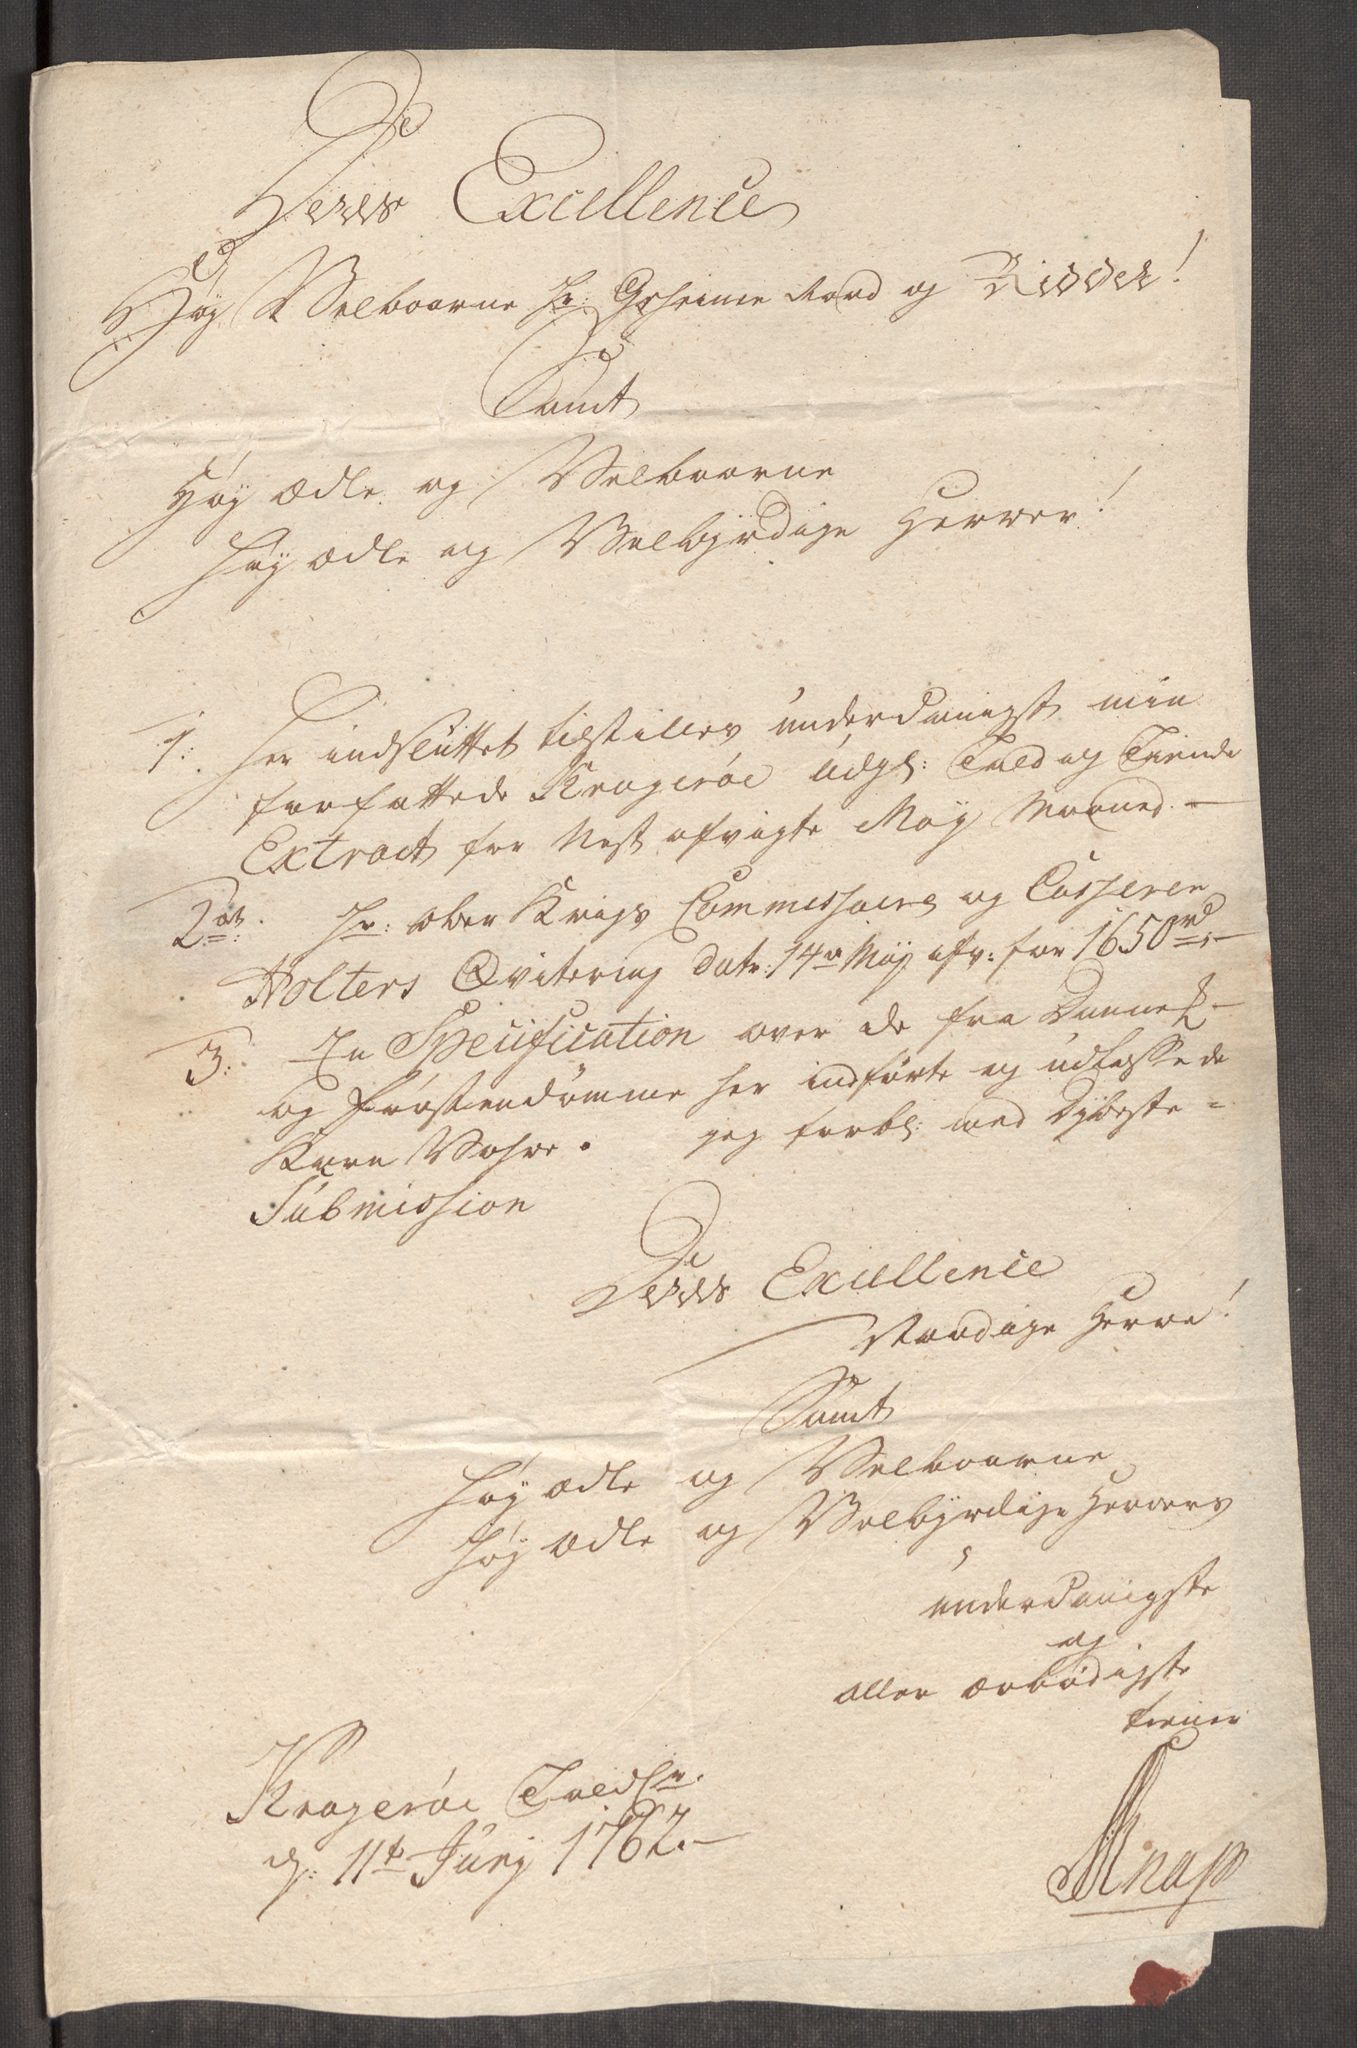 Deres Excellence
Høy Velbaarne Hr: Geheime Raad og Ridder!
Samt
Høy ædle og Velbaarne
Høy ædle og Velbyrdige Herrer!
1: Her indsluttet tilstilles underdanigst min
forfattede Kragerøe Udgl: Told og Tiende
Extract for Nest afvigte May Maaned. –
2det: Hr: ober Krigs Commissaire og Casserer
Holters Qvitering dat: 14de May afv: for 1650 rd. –
3: En Specification over de fra Danmk –
og Fürstendømme her indførte og udlossede
Korn Vahre. jeg forbl: med Dybeste
Submission
Deres Excellence
Naadige Herre!
Samt
Høy ædle og Velbaarne
Høy ædle og Velbyrdige Herrers
underdanigste
og
aller ærbødigste
tiener
Kragerøe Toldb.
d: 11te Junj 1762. –
Knap